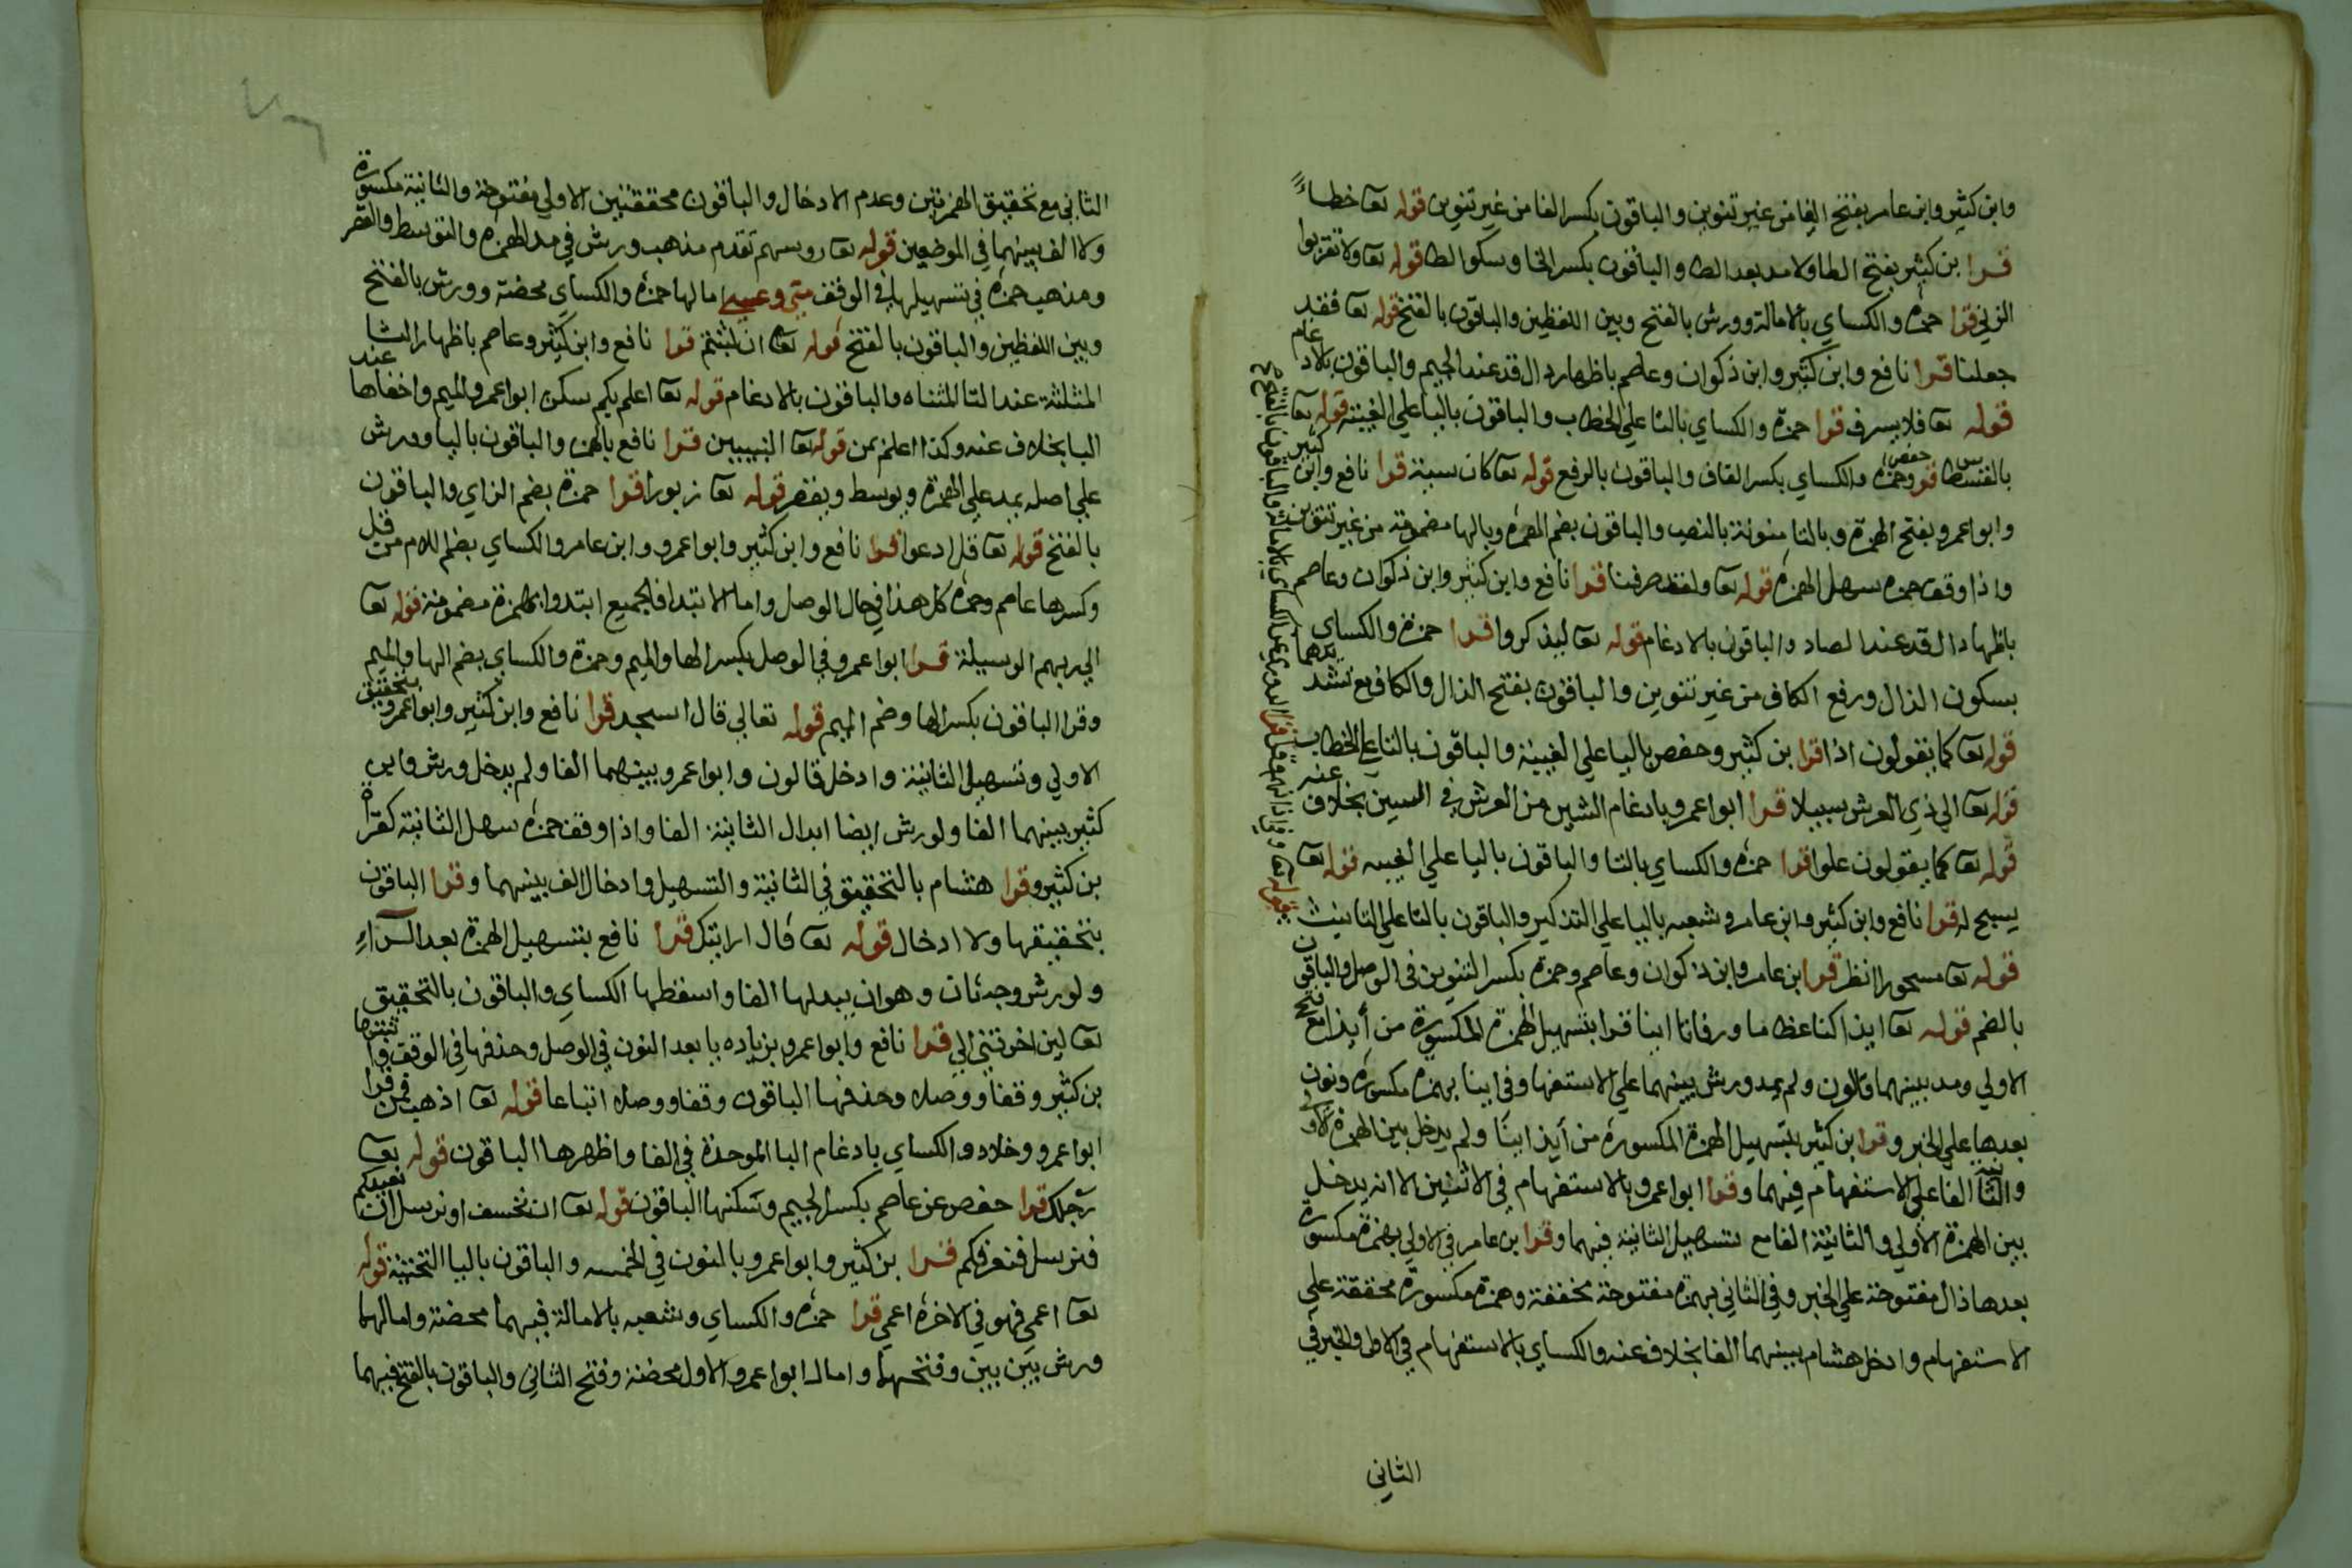 وابن كثير وابن عامر بفتح الفا من غير تنوين والباقون بكسر الفا من غير تنوين قوله تعا خطـاءً
قرا بن كثير بفتح الطا ولامد بعد الطا والباقون بكسر الخا وسكو الطا قوله تعا ولا تقربوا
الزني قرا حمزه والكساي بالامالة وورش بالفتح وبين اللفظين والباقون بالفتح قوله تعا فقد
جعلنا قرا نافع وابن كثير وابن ذكوان وعاصم باظهار دال قد عند الجيم والباقون بلادغام
قوله تعا فلا يسرف قرا حمزه والكساي بالتا علي الخطاب والباقون باليا علي الغيبة قوله تعا
بالقسطاس قرا حفص وحمزه والكساي بكسر القاف والباقون بالرفع قوله تعا كان سيئة قرا نافع وابن كثير
وابو اعمرو بفتح الهمزة وبالتا منونة بالنصب والباقون بضم الهمزه وبالها مضمومة من غير تنوين
واذا وقف حمزه سهل الهمزه قوله تعا ولقد صرفنا قرا نافع وابن كثير وابن ذكوان وعاصم
باظهار دال قد عند الصاد والباقون بالادغام قوله تعا ليذكروا قرا حمزة والكساي
بسكون الذال ورفع الكاف من غير تنوين والباقون بفتح الذال والكاف مع تشديدهما
قوله تعا كما يقولون اذا قرا بن كثير وحفص باليا علي الغيبة والباقون بالتا علي الخطاب
قوله تعا الي ذي العرش سبيلا قرا ابو اعمرو بادغام الشين من العرش في السين بخلاف عنه
قوله تعا كما يقولون علوا قرا حمزه والكساي بالتا والباقون باليا علي الغيبه قوله تعا
يسبح له قرا نافع وابن كثير وابن عامر وشعبه باليا علي التذكير والباقون بالتا علي التانيث
قوله تعا مسحورا انظر قرا ابن عامر وابن ذكوان وعاصم وحمزة بكسر التنوين في الوصل والباقون
بالضم قوله تعا ايذا كنا عظاما ورفاتا اينا قرا بتسهيل الهمزة المكسورة من أيذا مع فتح
الاولي ومد بينهما قالون ولم يمد ورش بينهما علي الاستفها وفي اينا بهمزه مكسوره ونون
بعدها علي الخبر وقرا بن كثير بتسهيل الهمزة المكسوره من أيذا اينا ولم يدخل بين الهمزة الاولي
والثانية الفا علي الاستفهام فيهما وقرا ابو اعمرو بالاستفهام في الاثنين الا انه يدخل
بين الهمزة الاولي والثانية الفا مع تسهيل الثانية فيهما وقرا بن عامر في الاولي بهمزة مكسورة
بعدها ذال مفتوحة علي الخبر وفي الثاني بهمزة مفتوحة مخففة وهمزة مكسورة محققة علي
الاستفهام وادخل هشام بينهما الفا بخلاف عنه والكساي بالاستفهام في الاول والخبر في
الثاني
الثاني مع تحقيق الهمزتين وعدم الادخال والباقون محققتين الاولي مفتوحة والثانية مكسورة
ولا الف بينهما في الموضعين قوله تعا روسهم تقدم مذهب ورش في مد الهمزه والتوسط والقصر
ومذهب حمزه في تسهيلها في الوقف متي وعسي امالها حمزه والكساي محضة وورش بالفتح
وبين اللفظين والباقون بالفتح قوله تعا ان لبثتم قرا نافع وابن كثير وعاصم باظهار الثا
المثلثة عند التا المثناه والباقون بالادغام قوله تعا اعلم بكم سكن ابو اعمرو الميم واخفاها عند
البا بخلاف عنه وكذا اعلم بمن قوله تعا النبيين قرا نافع بالهمز والباقون باليا وورش
علي اصله يمد علي الهمزة ويوسط ويقصر قوله تعا زبورا قرا حمزة بضم الزاي والباقون
بالفتح قوله تعا قل ادعوا قرا نافع وابن كثير وابو اعمرو وابن عامر والكساي بضم اللام من قل
وكسرها عاصم وحمزه كل هذا في حال الوصل واما الابتدا فالجميع ابتدوا بهمزة مضمومة قوله تعا
الي ربهم الوسيلة قرا ابو اعمرو في الوصل بكسر الها والميم وحمزة والكساي بضم الها والميم
وقرا الباقون بكسر الها وضم الميم قوله تعالي قال اسجد قرا نافع وابن كثير وابو اعمرو بتحقيق
الاولي وتسهيل الثانية وادخل قالون وابو اعمرو بينهما الفا ولم يدخل ورش وابن
كثير بينهما الفا ولورش ايضا ابدال الثانية الفا واذا وقف حمزه سهل الثانية كقراة
بن كثير وقرا هشام بالتحقيق في الثانية والتسهيل وادخال الف بينهما وقرا الباقون
بتحقيقها ولا ادخال قوله تعا قال ارايتك قرا نافع بتسهيل الهمزة بعد الراء
ولورش وجهان وهو ان يبدلها الفا واسقطها الكساي والباقون بالتحقيق
تعا لين اخرتني الي قرا نافع وابو اعمرو بزياده يا بعد النون في الوصل وحذفها في الوقف واثبتها
بن كثير وقفا ووصلا وحذفها الباقون وقفا ووصلا اتباعا قوله تعا اذهب فمن قرا
ابو اعمرو وخلاد والكساي بادغام البا الموحدة في الفا واظهرها الباقون قوله تعا
رجلك قرا حفص عن عاصم بكسر الجيم وسكنها الباقون قوله تعا ان نخسف او نرسل ان نعيدكم
فنرسل فنغرقكم قرا بن كثير وابو اعمرو بالنون في الخمسه والباقون باليا التحتية قوله
تعا اعمي فهو في الاخرة اعمي قرا حمزه والكساي وشعبه بالامالة فيهما محضة وامالهما
ورش بين بين وفتحهما وامال ابو اعمرو الاول محضة وفتح الثاني والباقون بالفتح فيهما